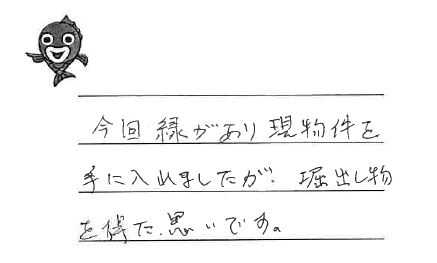 今回縁があり現物件を
手に入れましたが、堀出し物
を得た思いです。